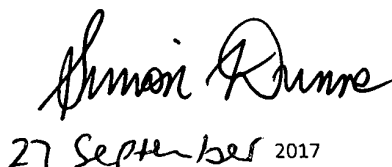 Simon Dunne
27 September 2017